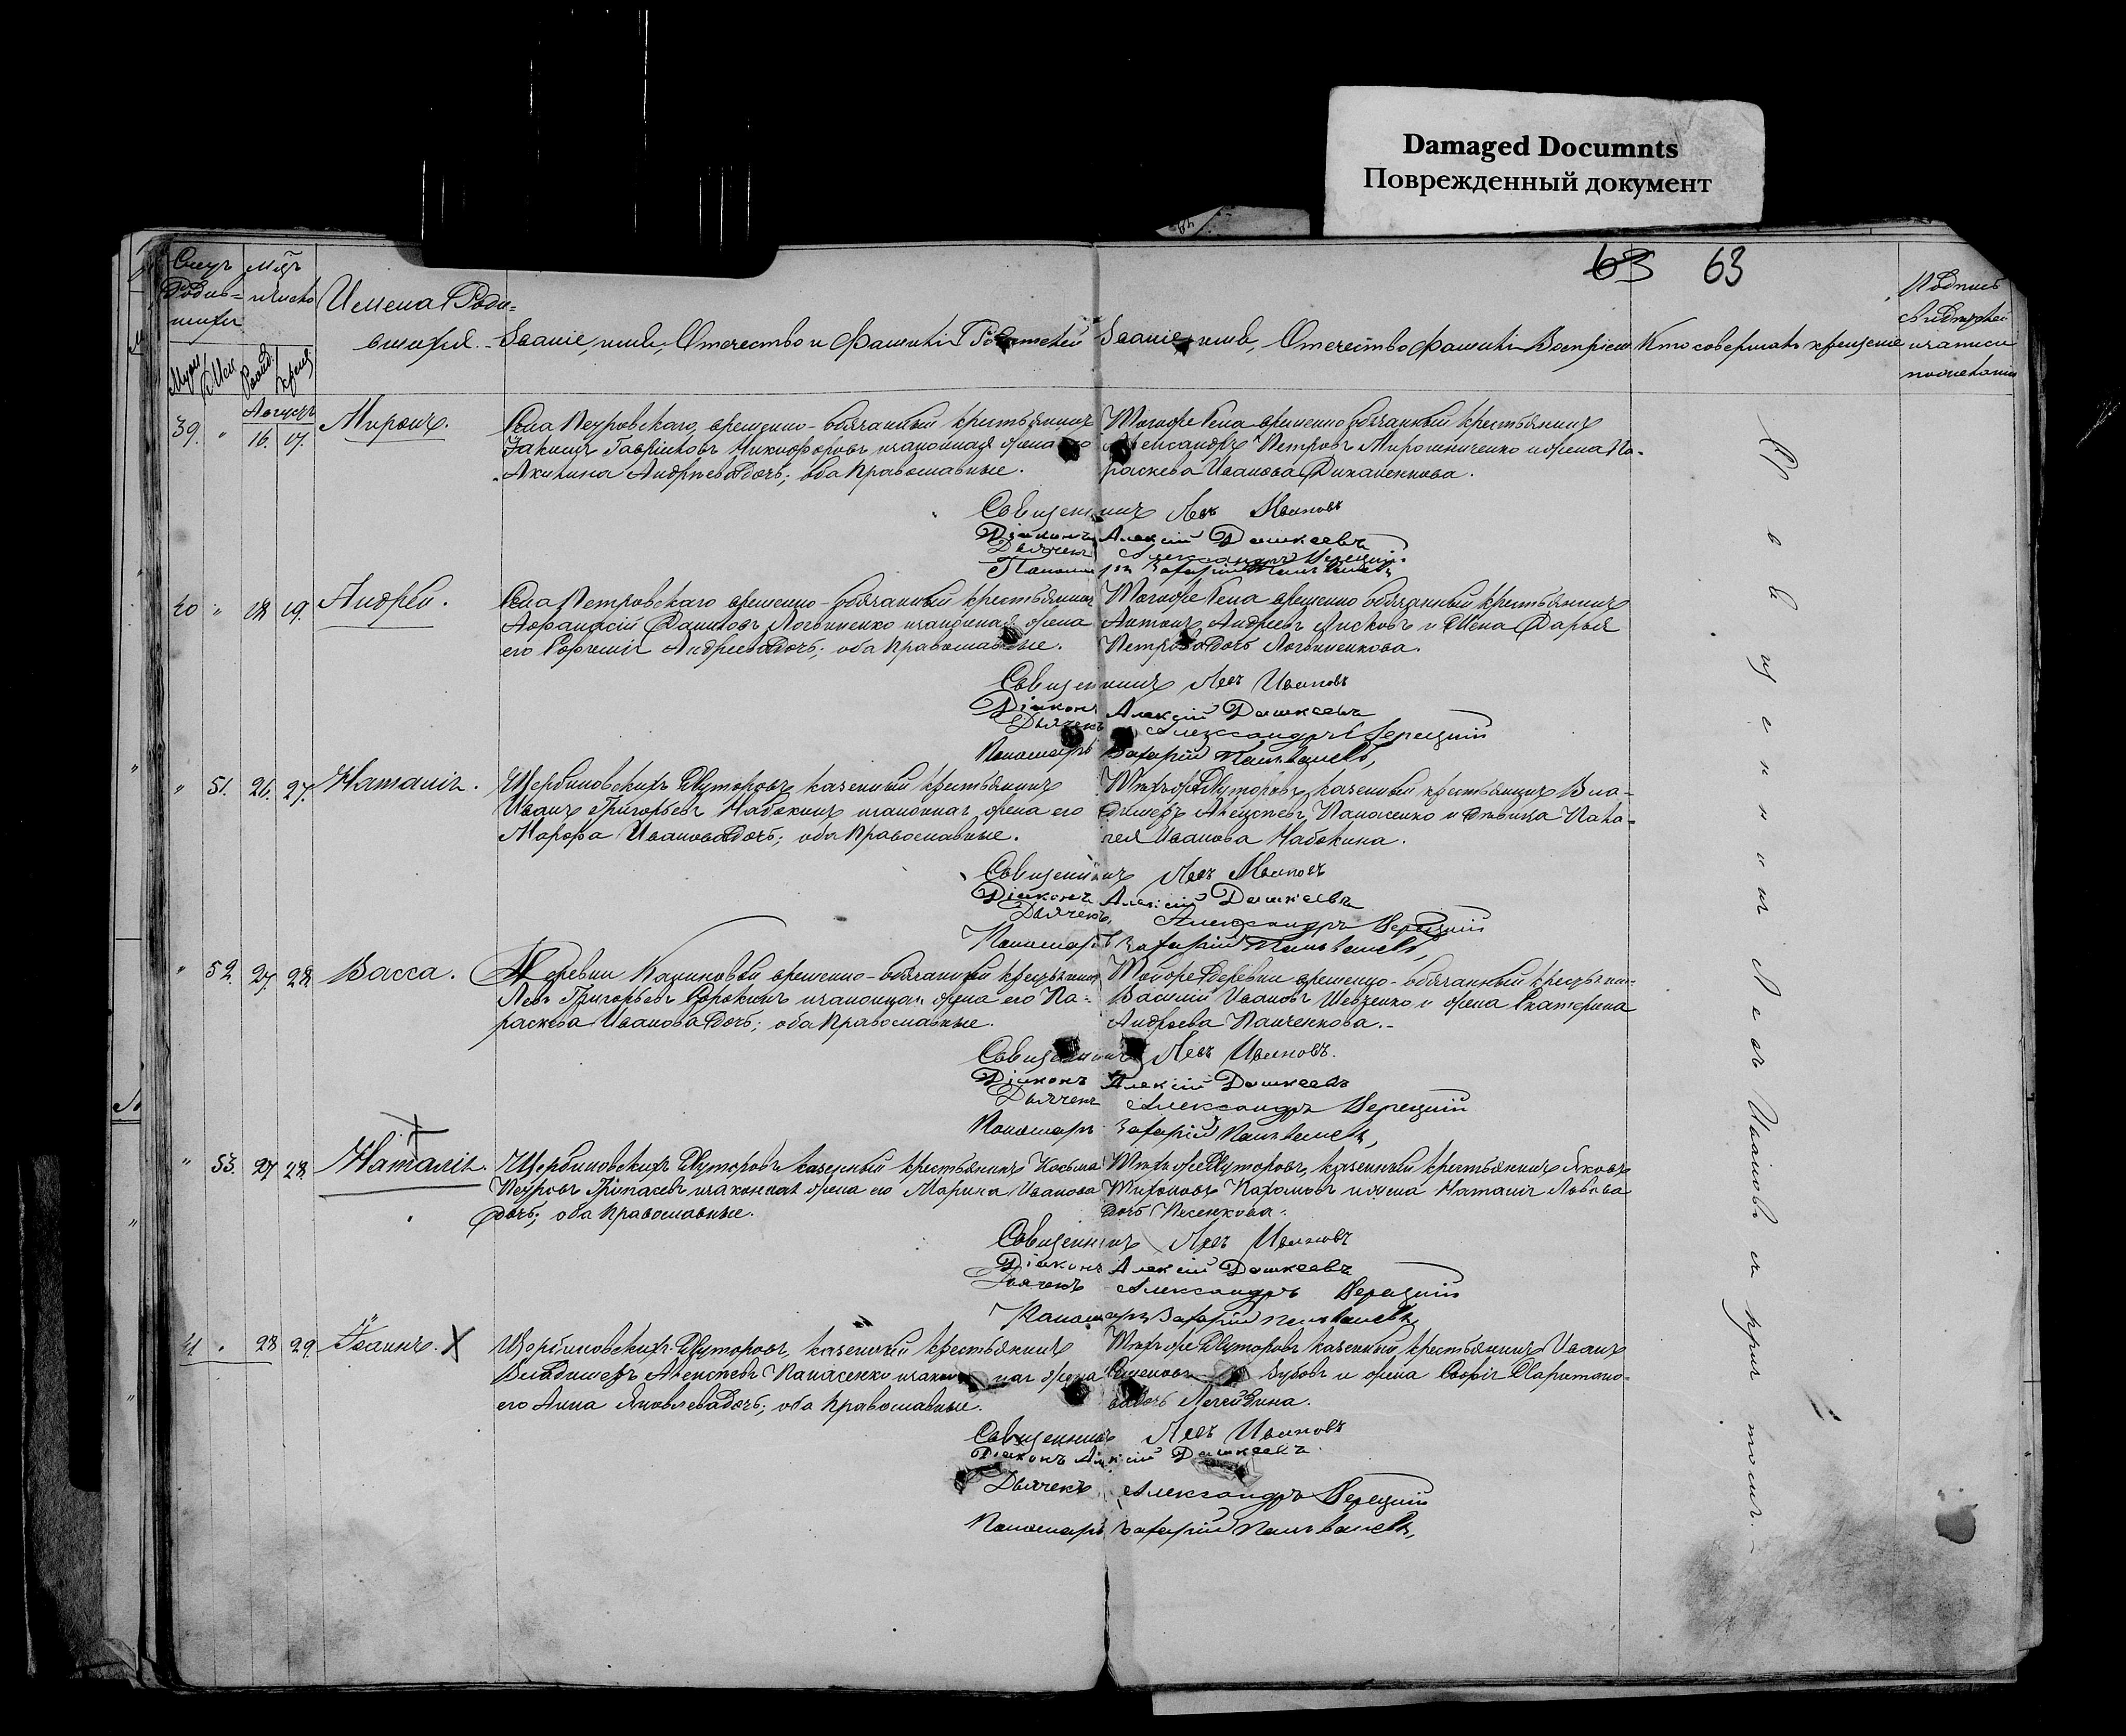 Damaged Documnts
Поврежденный документ
63 63
Счетъ Родив=шихся
Мѣсяцъ и число
Имена Роди=
вшихся.
Званіе, имя, Отечество и Фамилія Родителей
Званіе, имя, Отечество фамилія Воспріем
Кто совершалъ крещеніе
Подпись
свидѣтелей
записи
по желанію
Муж
Жен
Рожд.
Крещ
Августъ
39. " 16. 17. Миронъ.
Села Петровскаго, временно-обязанный крестьянинъ
Іакимъ Гавріиловъ Никифоровъ и законная жена его
Акилина Андреева дочь; оба Православные.
Тогоже Села временно обязанный крестьянинъ
Александръ Петровъ Мирошниченко и жена Па-
раскева Иванова Диканенкова.
Священникъ Левъ Ивановъ
Діаконъ Алексій Дашкеевъ
Дьячекъ Александръ Верецкій
Пономарь Захарій
40 " 18 19. Андрей.
Села Петровскаго временно-обязанный крестьянинъ
Афанасій Даниловъ Логвиненко и законная жена
его Софія Андреева дочь; оба Православные.
Тогоже Села временно обязанный крестьянинъ
Антонъ Андреевъ Лисковъ и Жена Дарья
Петрова дочь Логвиненкова.
Священникъ Левъ Ивановъ
Діаконъ Алексій Дашкеевъ
Дьячекъ Александръ Верецкій
Пономарь Захарій
" 51. 26. 27. Наталія.
Щербиновскихъ Хуторовъ казенный крестьянинъ
Иванъ Григорьевъ Набокинъ и законная жена его
Марфа Иванова дочь; оба Православные.
Тѣхъ же Хуторовъ, казенный крестьянинъ Вла-
димеръ Алексѣевъ Панасенко и дѣвица Пала-
гея Иванова Набокина.
Священникъ Левъ Ивановъ
Діаконъ Алексій Дашкеевъ
Дьячекъ Александръ Верецкій
Пономарь Захарій
" 52. 27. 28 Васса.
Деревни Калиновой временно-обязанный крестьянинъ
Левъ Григорьевъ Сорокинъ и законная жена его Па-
раскева Иванова дочь; оба Православные.
Той же Деревни временно-обязанный крестьянин=
Василій Ивановъ Шевченко и жена Екатерина
Андреева Панченкова.-
Священникъ Левъ Ивановъ.
Діаконъ Алексій Дашкеевъ
Дьячекъ Александръ Верецкій
Пономарь Захарій
" 53. 27 28. Наталія.
Щербиновскихъ Хуторовъ казенный крестьянинъ Косьма
Петровъ и законная жена его Марина Иванова
дочь; оба Православные.
Тѣхъ же Хуторовъ, казенный крестьянинъ Яковъ
Тихоновъ и жена Наталія Львова
дочь Песенкова.
Священникъ Левъ Ивановъ
Діаконъ Алексій Дашкеевъ
Дьячекъ Александръ Верецкій
Пономарь Захарій
41 " 28 29. Іоаннъ. X
Щербиновскихъ Хуторовъ, казенный крестьянинъ
Владимеръ Алексѣевъ Панасенко и законная жена
его Анна Яковлева дочь; оба Православные.
Тѣхъ же Хуторовъ казенный крестьянинъ Иванъ
Семеновъ Зубовъ и жена Софія Харитоно-
ва дочь
Священникъ Левъ Ивановъ
Діаконъ Алексій Дашкеевъ.
Дьячекъ Александръ Верецкій
Пономарь Захарій
Священникъ Левъ Ивановъ